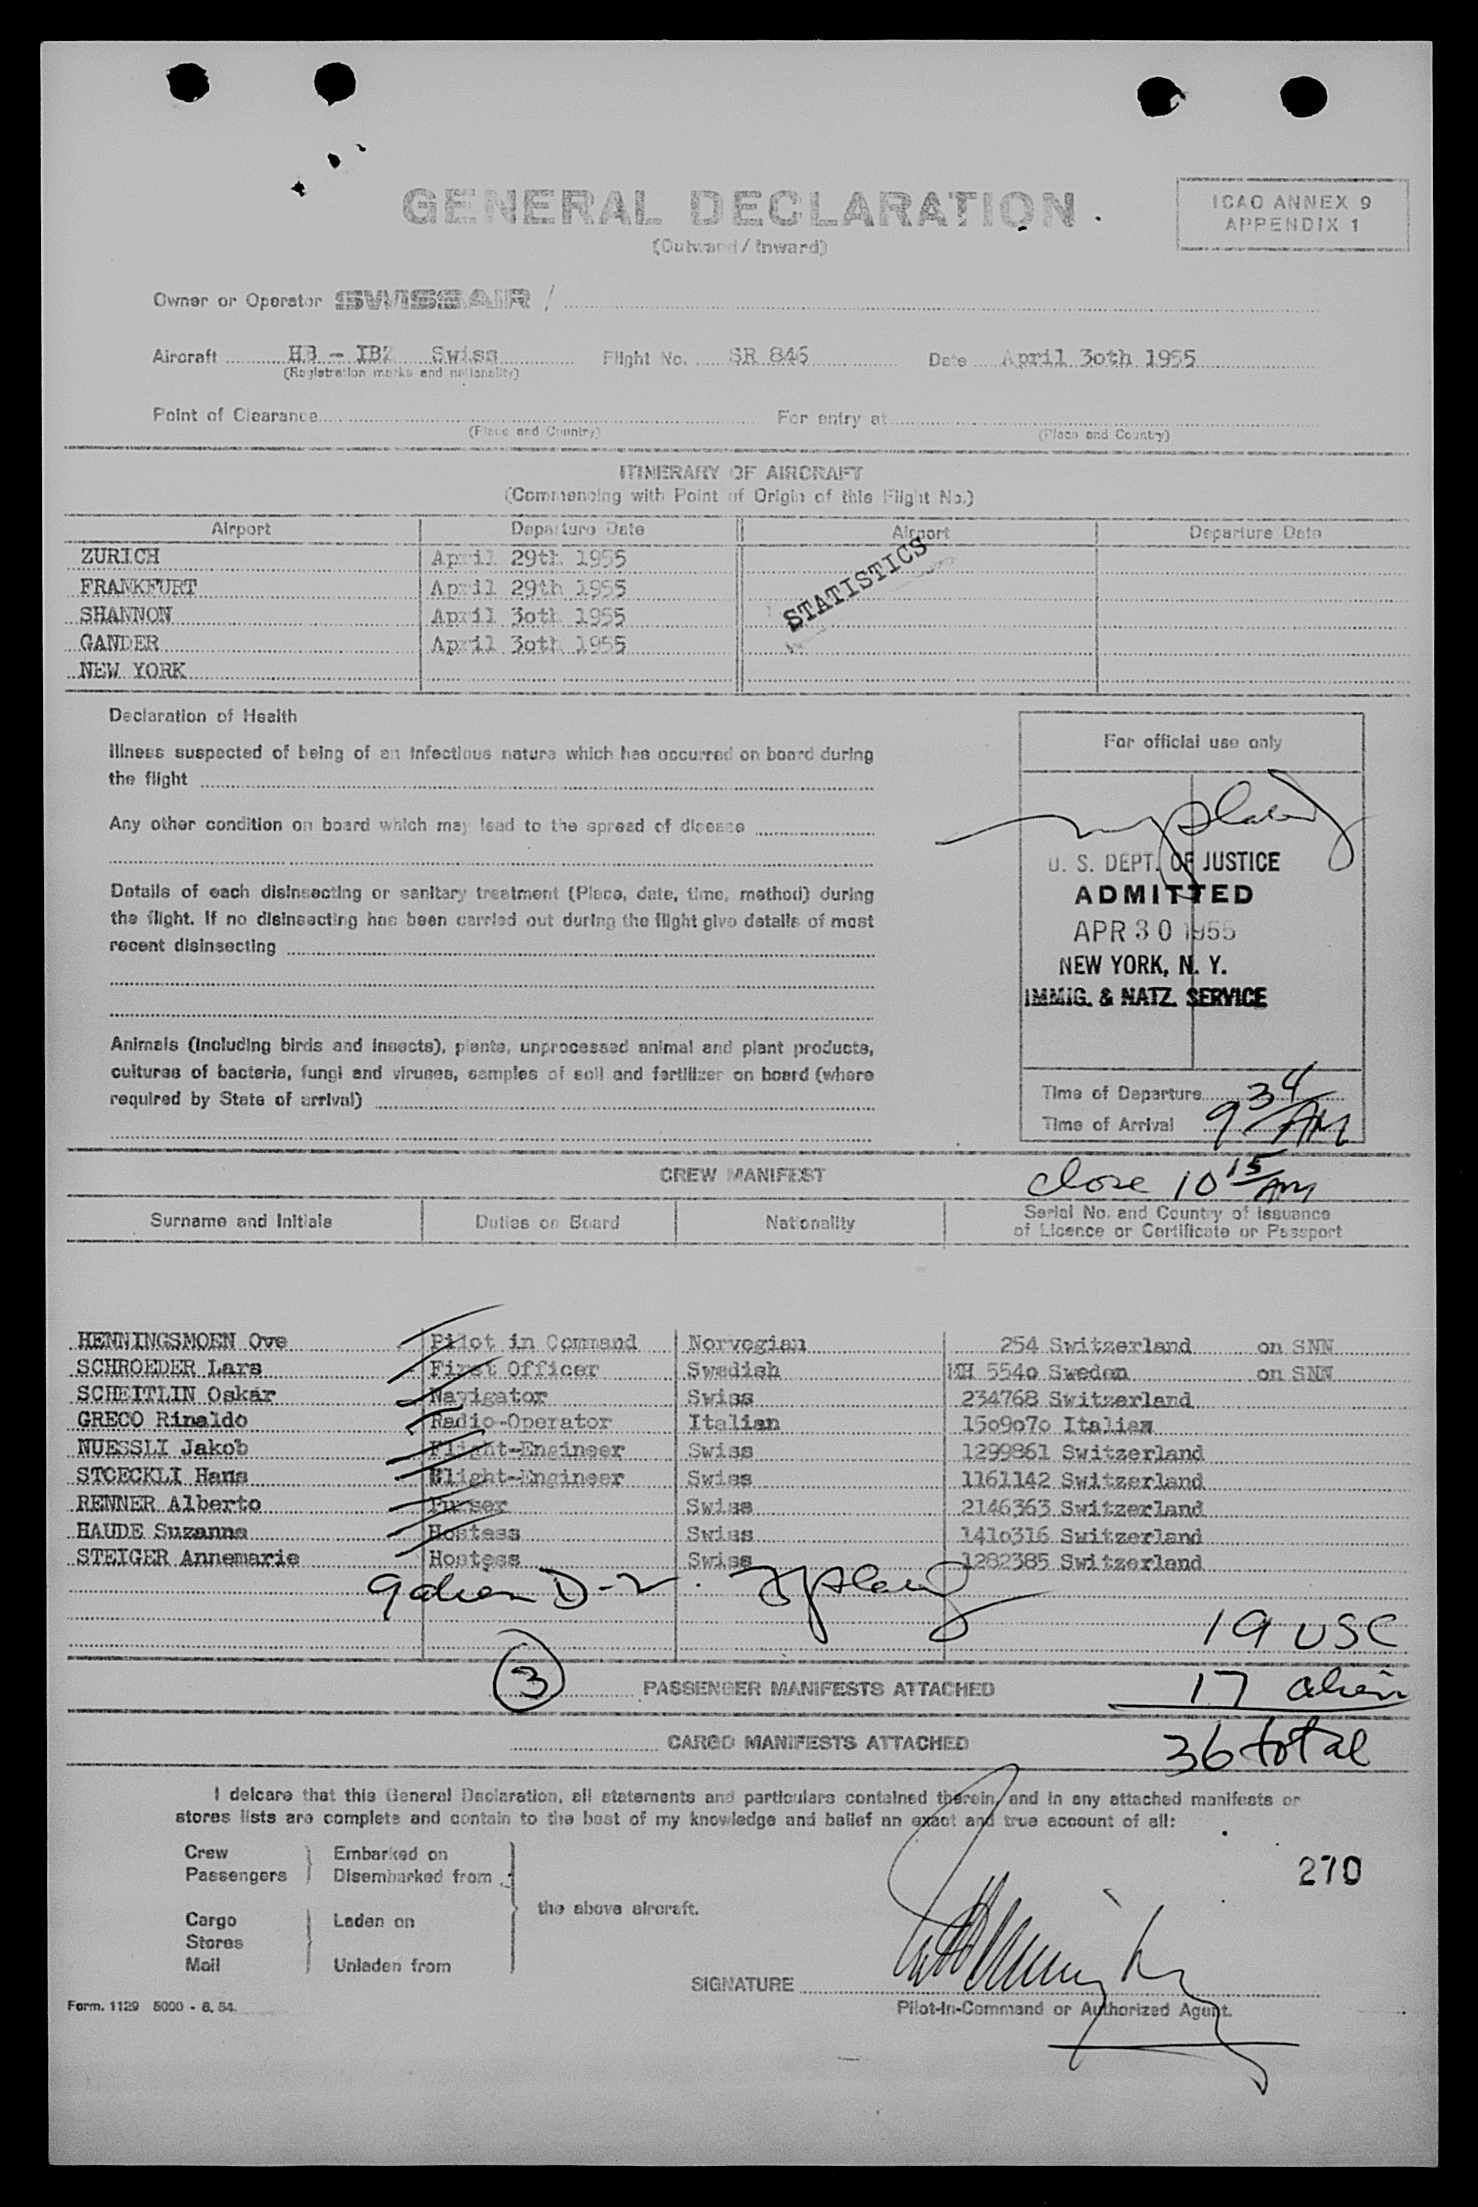 GENERAL DECLARATION
(Outward / Inward)
ICAO ANNEX 9
APPENDIX 1
Owner or Operator SWISSAIR /
Aircraft HB - IBZ Swiss Flight No. SR 846 Date April 3oth 1955
(Registration marks and nationality)
Point of Clearance For entry at
(Place and Country) (Place and Country)
ITINERARY OF AIRCRAFT
(Commencing with Point of Origin of this Flight No.)
Airport Departure Date Airport Departure Date
ZURICH April 29th 1955
FRANKFURT April 29th 1955
SHANNON April 3oth 1955
GANDER April 3oth 1955
NEW YORK
STATISTICS
Declaration of Health
Illness suspected of being of an infectious nature which has occurred on board during
the flight
Any other condition on board which may lead to the spread of disease
Details of each disinsecting or sanitary treatment (Place, date, time, method) during
the flight. If no disinsecting has been carried out during the flight give details of most
recent disinsecting
Animals (including birds and insects), plants, unprocessed animal and plant products,
cultures of bacteria, fungi and viruses, samples of soil and fertilizer on board (where
required by State of arrival)
For official use only
U. S. DEPT. OF JUSTICE
ADMITTED
APR 30 1955
NEW YORK, N. Y.
IMMIG. & NATZ. SERVICE
Time of Departure
Time of Arrival 9 34 AM
CREW MANIFEST
close 10 15 AM
Surname and Initials Duties on Board Nationality Serial No. and Country of issuance
of Licence or Certificate or Passport
HENNINGSMOEN Ove Pilot in Command Norvegian 254 Switzerland on SNN
SCHROEDER Lars First Officer Swedish MH 554o Sweden on SNN
SCHEITLIN Oskar Navigator Swiss 234768 Switzerland
GRECO Rinaldo Radio-Operator Italian 15o9o7o Italian
NUESSLI Jakob Flight-Engineer Swiss 1299861 Switzerland
STOECKLI Hans Flight-Engineer Swiss 1161142 Switzerland
RENNER Alberto Purser Swiss 2146363 Switzerland
HAUDE Suzanne Hostess Swiss 141o316 Switzerland
STEIGER Annemarie Hostess Swiss 1282385 Switzerland
9 alien D-2.
19 USC
3 PASSENGER MANIFESTS ATTACHED 17 alien
CARGO MANIFESTS ATTACHED 36 total
I delcare that this General Declaration, all statements and particulars contained therein, and in any attached manifests or
stores lists are complete and contain to the best of my knowledge and belief an exact and true account of all:
Crew Embarked on
Passengers Disembarked from
the above aircraft.
Cargo Laden on
Stores
Mail Unladen from
270
SIGNATURE
Pilot-in-Command or Authorized Agent.
Form. 1129 5000 - 8. 54.